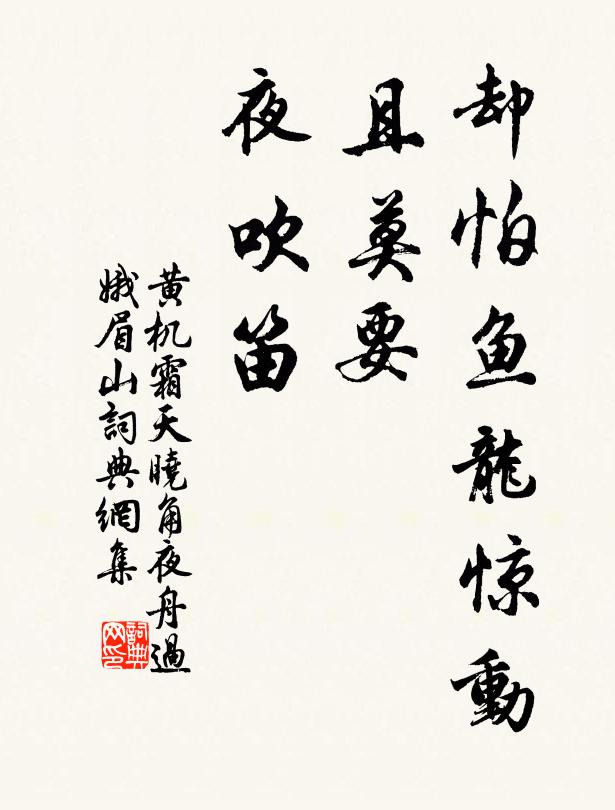 却怕鱼龍惊動
且莫要
夜吹笛
黄机霜天曉角夜舟過
娥眉山詞典網集
詞典网印